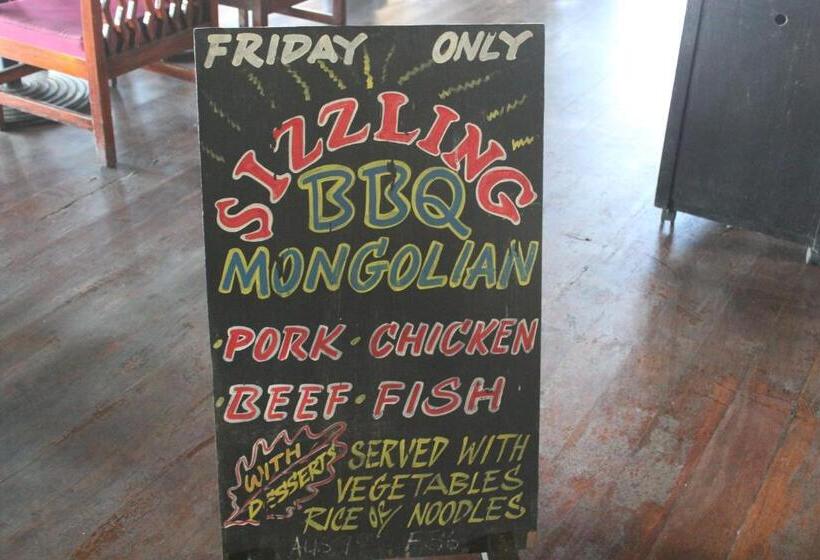 FRIDAY ONLY
SIZZLING
BBQ
MONGOLIAN
·PORK·CHICKEN
·BEEF·FISH
WITH
DESSERTS
SERVED WITH
VEGETABLES
RICE OR NOODLES